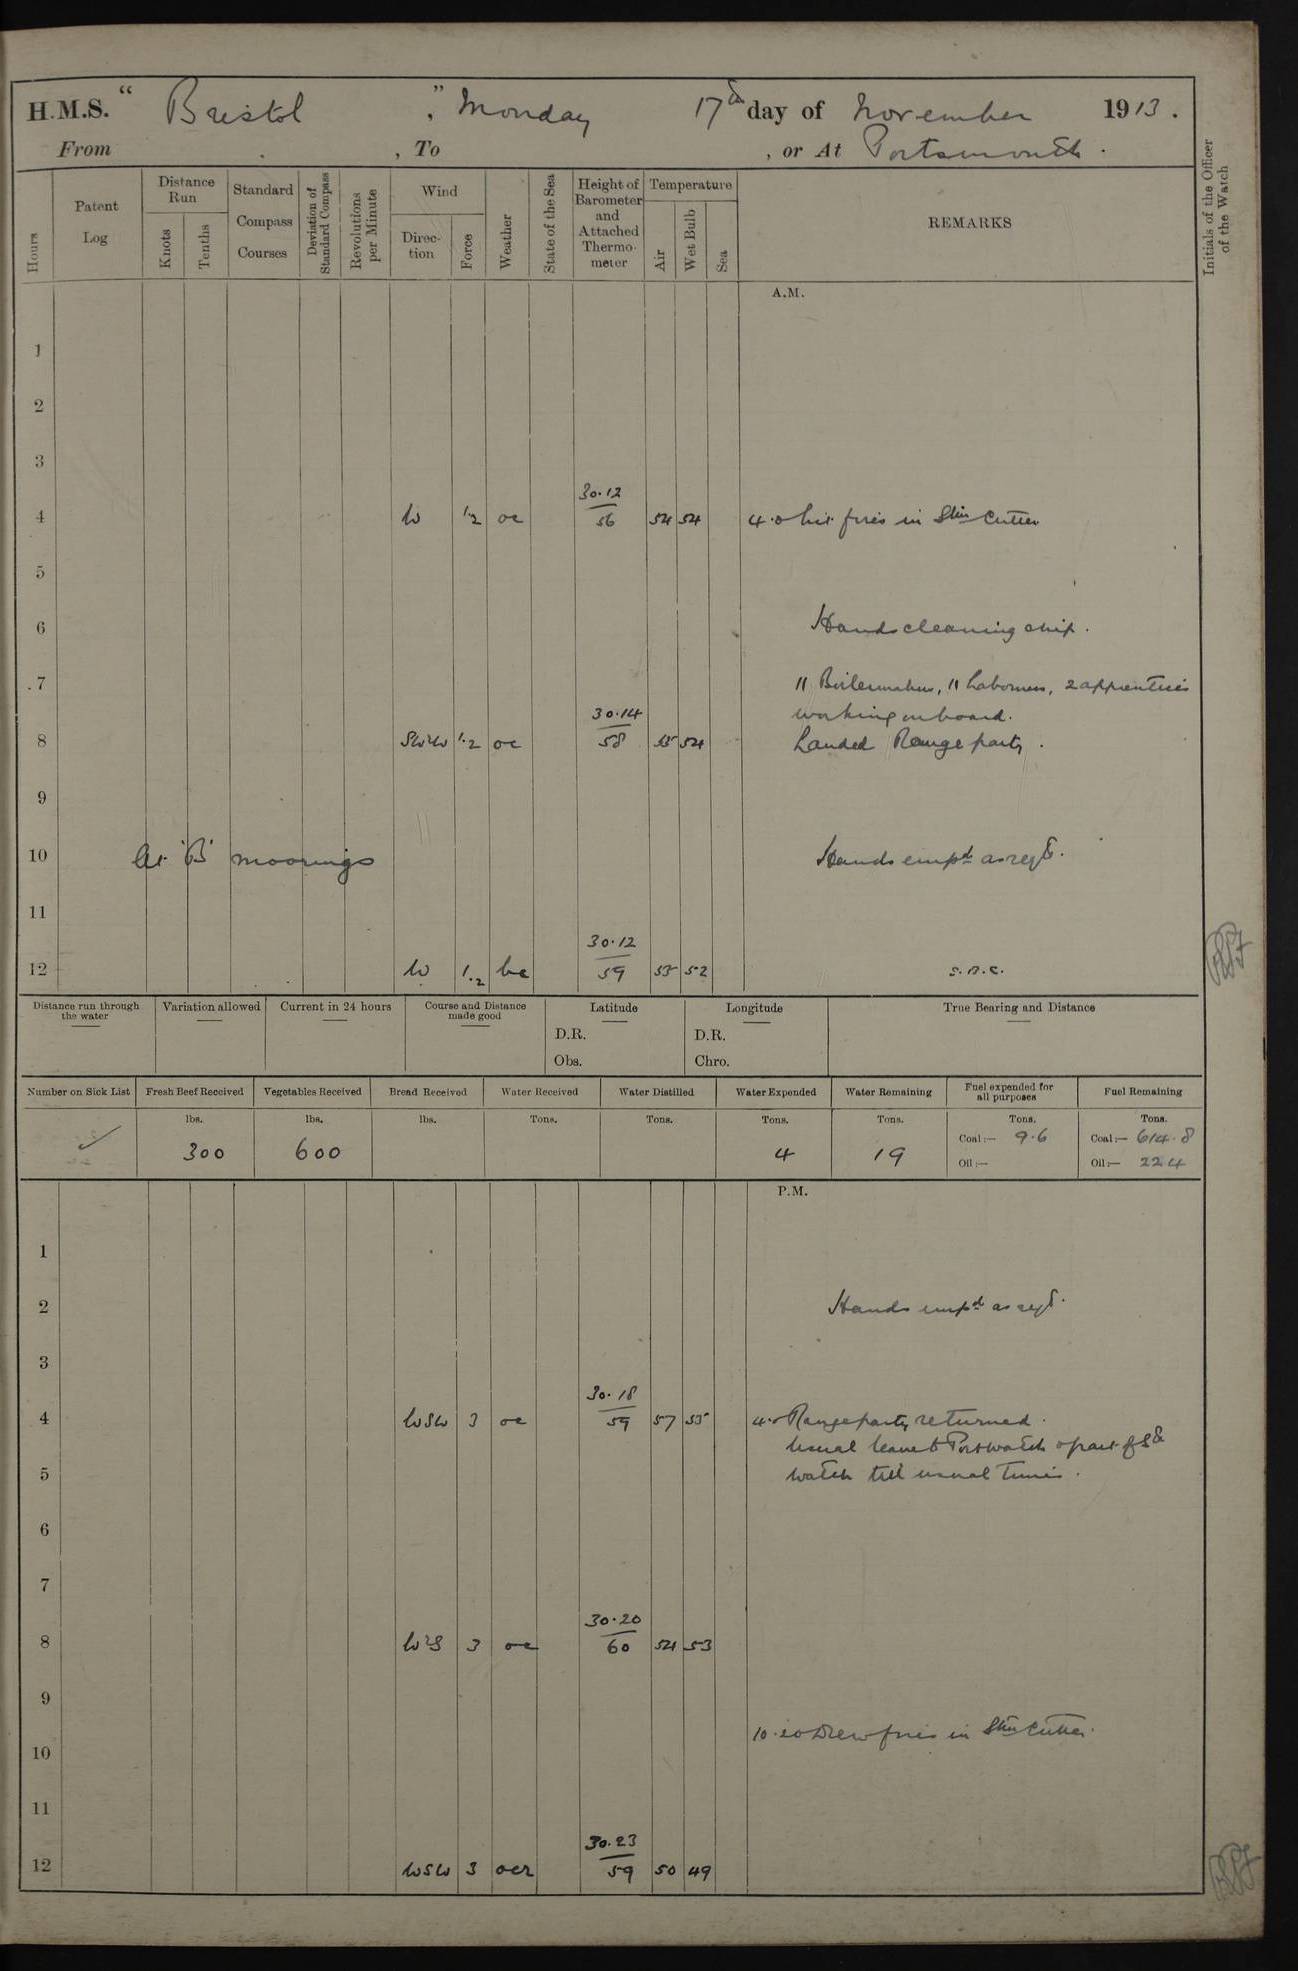 H.M.S. “ Bristol ”, Monday 17th day of November 1913.
From , To , or At Portsmouth.
Hours
Patent Log
Distance Run
Knots
Tenths
Standard Compass Courses
Deviation of Standard Compass
Revolutions per Minute
Wind
Direc-tion
Force
Weather
State of the Sea
Height of Barometer and Attached Thermo-meter
Temperature
Air
Wet Bulb
Sea
REMARKS
Initials of the Officer of the Watch
A.M.
1
2
3
30.12
4 W 1.2 oc 56 54 54 4.0 Lit fires in Stm Cutter
5
6 Hands cleaning ship.
7 11 Boilermakers, 11 Labourers, 2 apprentices
30.14 working onboard.
8 SW'W 1.2 oc 58 55 54 Landed Range party.
9
10 At 'B' moorings Hands empd as reqd.
11
30.12
12 W 1.2 bc 59 55 52 S.B.C.
Distance run through the water
Variation allowed
Current in 24 hours
Course and Distance made good
Latitude
D.R.
Obs.
Longitude
D.R.
Chro.
True Bearing and Distance
Number on Sick List
Fresh Beef Received
Vegetables Received
Bread Received
Water Received
Water Distilled
Water Expended
Water Remaining
Fuel expended for all purposes
Fuel Remaining
lbs. lbs. lbs. Tons. Tons. Tons. Tons. Tons. Tons.
300 600 4 19 Coal:— 9.6 Coal:— 614.8
Oil:— Oil:— 224
P.M.
1
2 Hands empd as reqd.
3
30.18
4 WSW 3 oc 59 57 55 4.0 Range party returned.
Usual leave to Port watch & part of Stbd
5 watch till usual times.
6
7
30.20
8 W'S 3 oc 60 54 53
9
10.20 Drew fires in Stm Cutter.
10
11
30.23
12 WSW 3 ocr 59 50 49